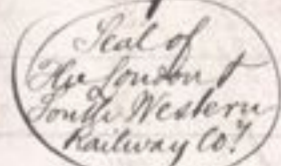 Seal of
The London &
South Western
Railway Co.y